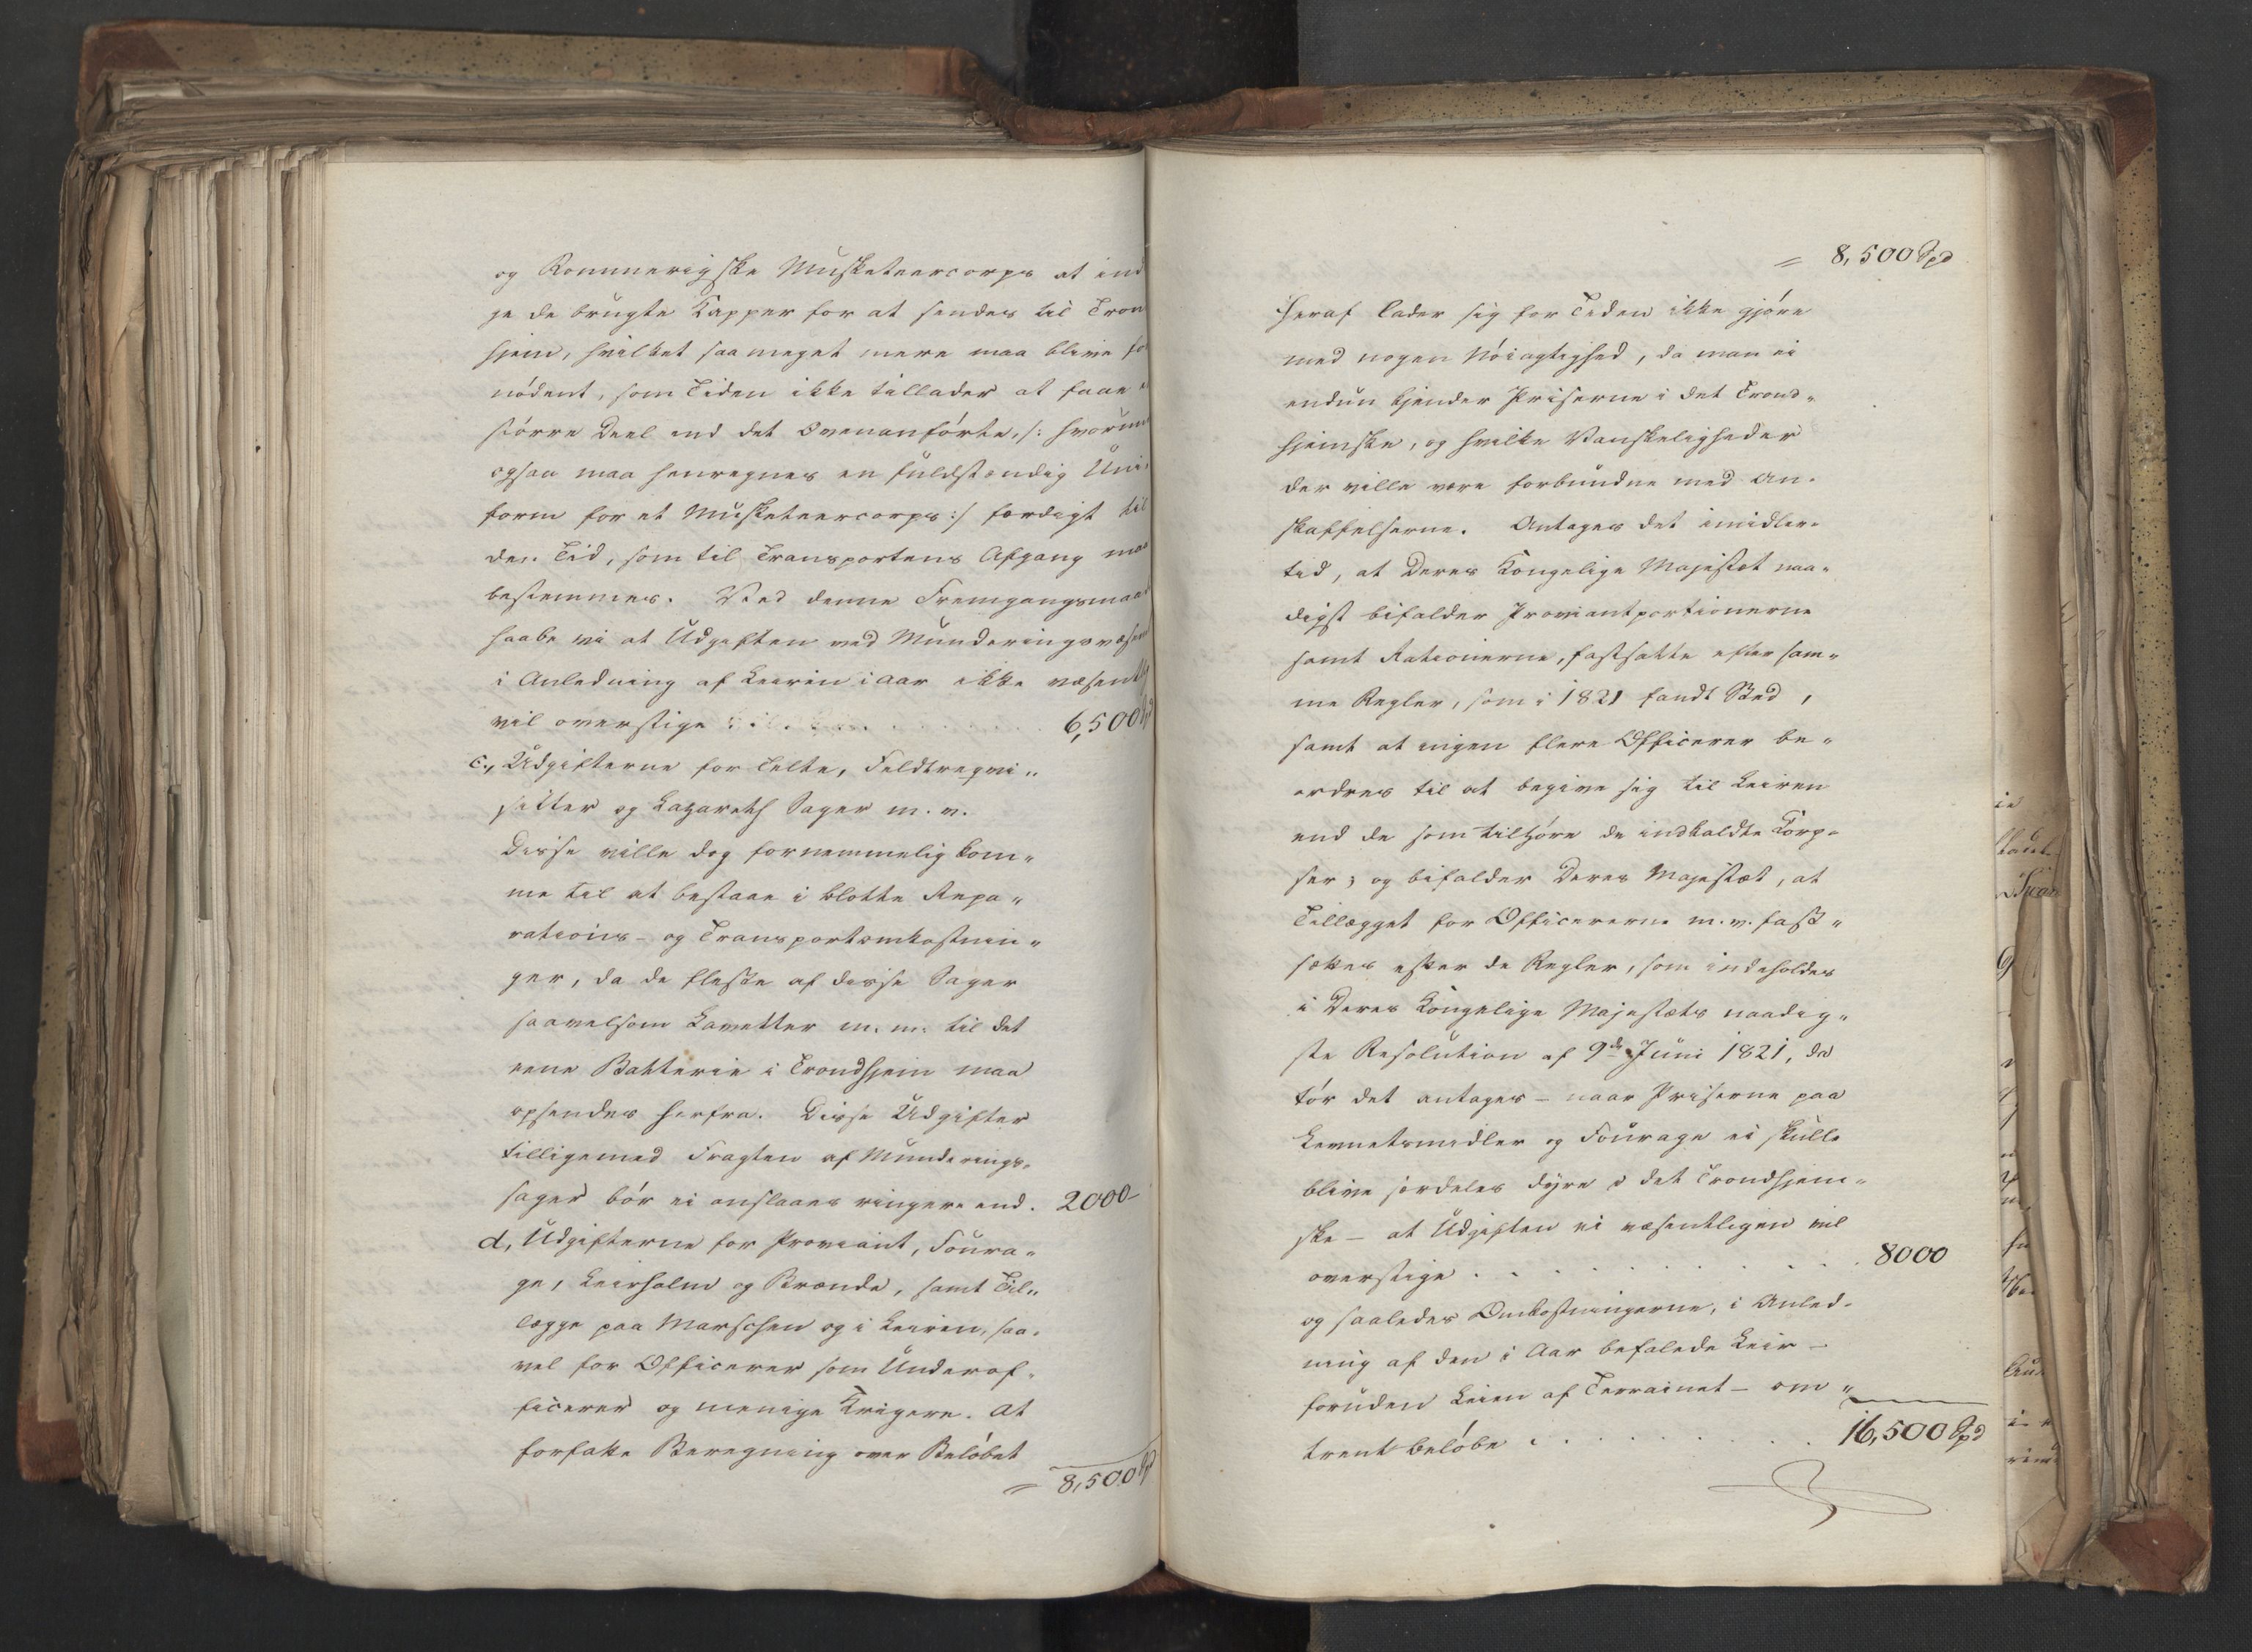 og Rommerigske Musketeercorps at ind
ge de brugte Kapper for at sendes til Tron
hjem, hvilket saa meget mere maa blive for
nödent, som Tiden ikke tillader at faae
större Deel end det Ovenanförte, /: hvorun
ogsaa maa henregnes en fuldstændig Uni„
form for et Musketeercorps :/ færdigt til
den Tid, som til Transportens Afgang maa
bestemmes. Ved denne Fremgangsmaad
haabe vi at Udgiften ved Munderingsvæsen
i Anledning af Leiren i Aar ikke væsentlig
vil overstige . . . . . . . 6,500 Spd
c., Udgifterne for Telte, Feldtreqvi„
siter og Lazareth Sager m. v.
Disse ville dog fornemmelig kom„
me til at bestaae i blotte Repa„
rations- og Transportomkostnin„
ger, da de fleste af disse Sager
saavelsom Lavetter m. m. til det
eene Batterie i Trondhjem maa
opsendes herfra. Disse Udgifter
tilligemed Fragten af Munderings„
sager bör ei anslaaes ringere end . 2000-
d, Udgifterne for Proviant, Foura„
ge, Leirhalm og Brænde, samt Til„
lægge paa Marschen og i Leiren, saa„
vel for Officerer som Underof„
ficerer og menige Krigere. At
forfatte Beregning over Belöbet
= 8,500 Spd
= 8,500 Spd
heraf lader sig for Tiden ikke gjöre
med nogen Nöiagtighed, da man ei
endnu kjender Priserne i det Trond„
hjemske, og hvilke Vanskeligheder
der ville være forbundne med An„
skaffelserne. Antages det imidler„
tid, at Deres Kongelige Majestæt naa„
digst bifalder Proviantportionerne
samt Rationerne, fastsatte efter sam„
me Regler, som i 1821 fandt Sted,
samt at ingen flere Officerer be„
ordres til at begive sig til Leiren
end de som tilhöre de indkaldte Corp„
ser; og bifalder Deres Majestæt, at
Tillægget for Officererne m. v. fast„
sættes efter de Regler, som indeholdes
i Deres Kongelige Majestæts naadig„
ste Resolution af 9de Juni 1821, da
tör det antages – naar Priserne paa
Levnetsmidler og Fourage ei skulle
blive særdeles dyre i det Trondhjem„
ske – at Udgiften ei væsentligen vil
overstige . . . . . . . . . . 8000
og saaledes Omkostningerne, i Anled„
ning af den i Aar befalede Leir –
foruden Leien af Terrainet – om „
trent belöbe . . . . . . . . 16,500 Spd